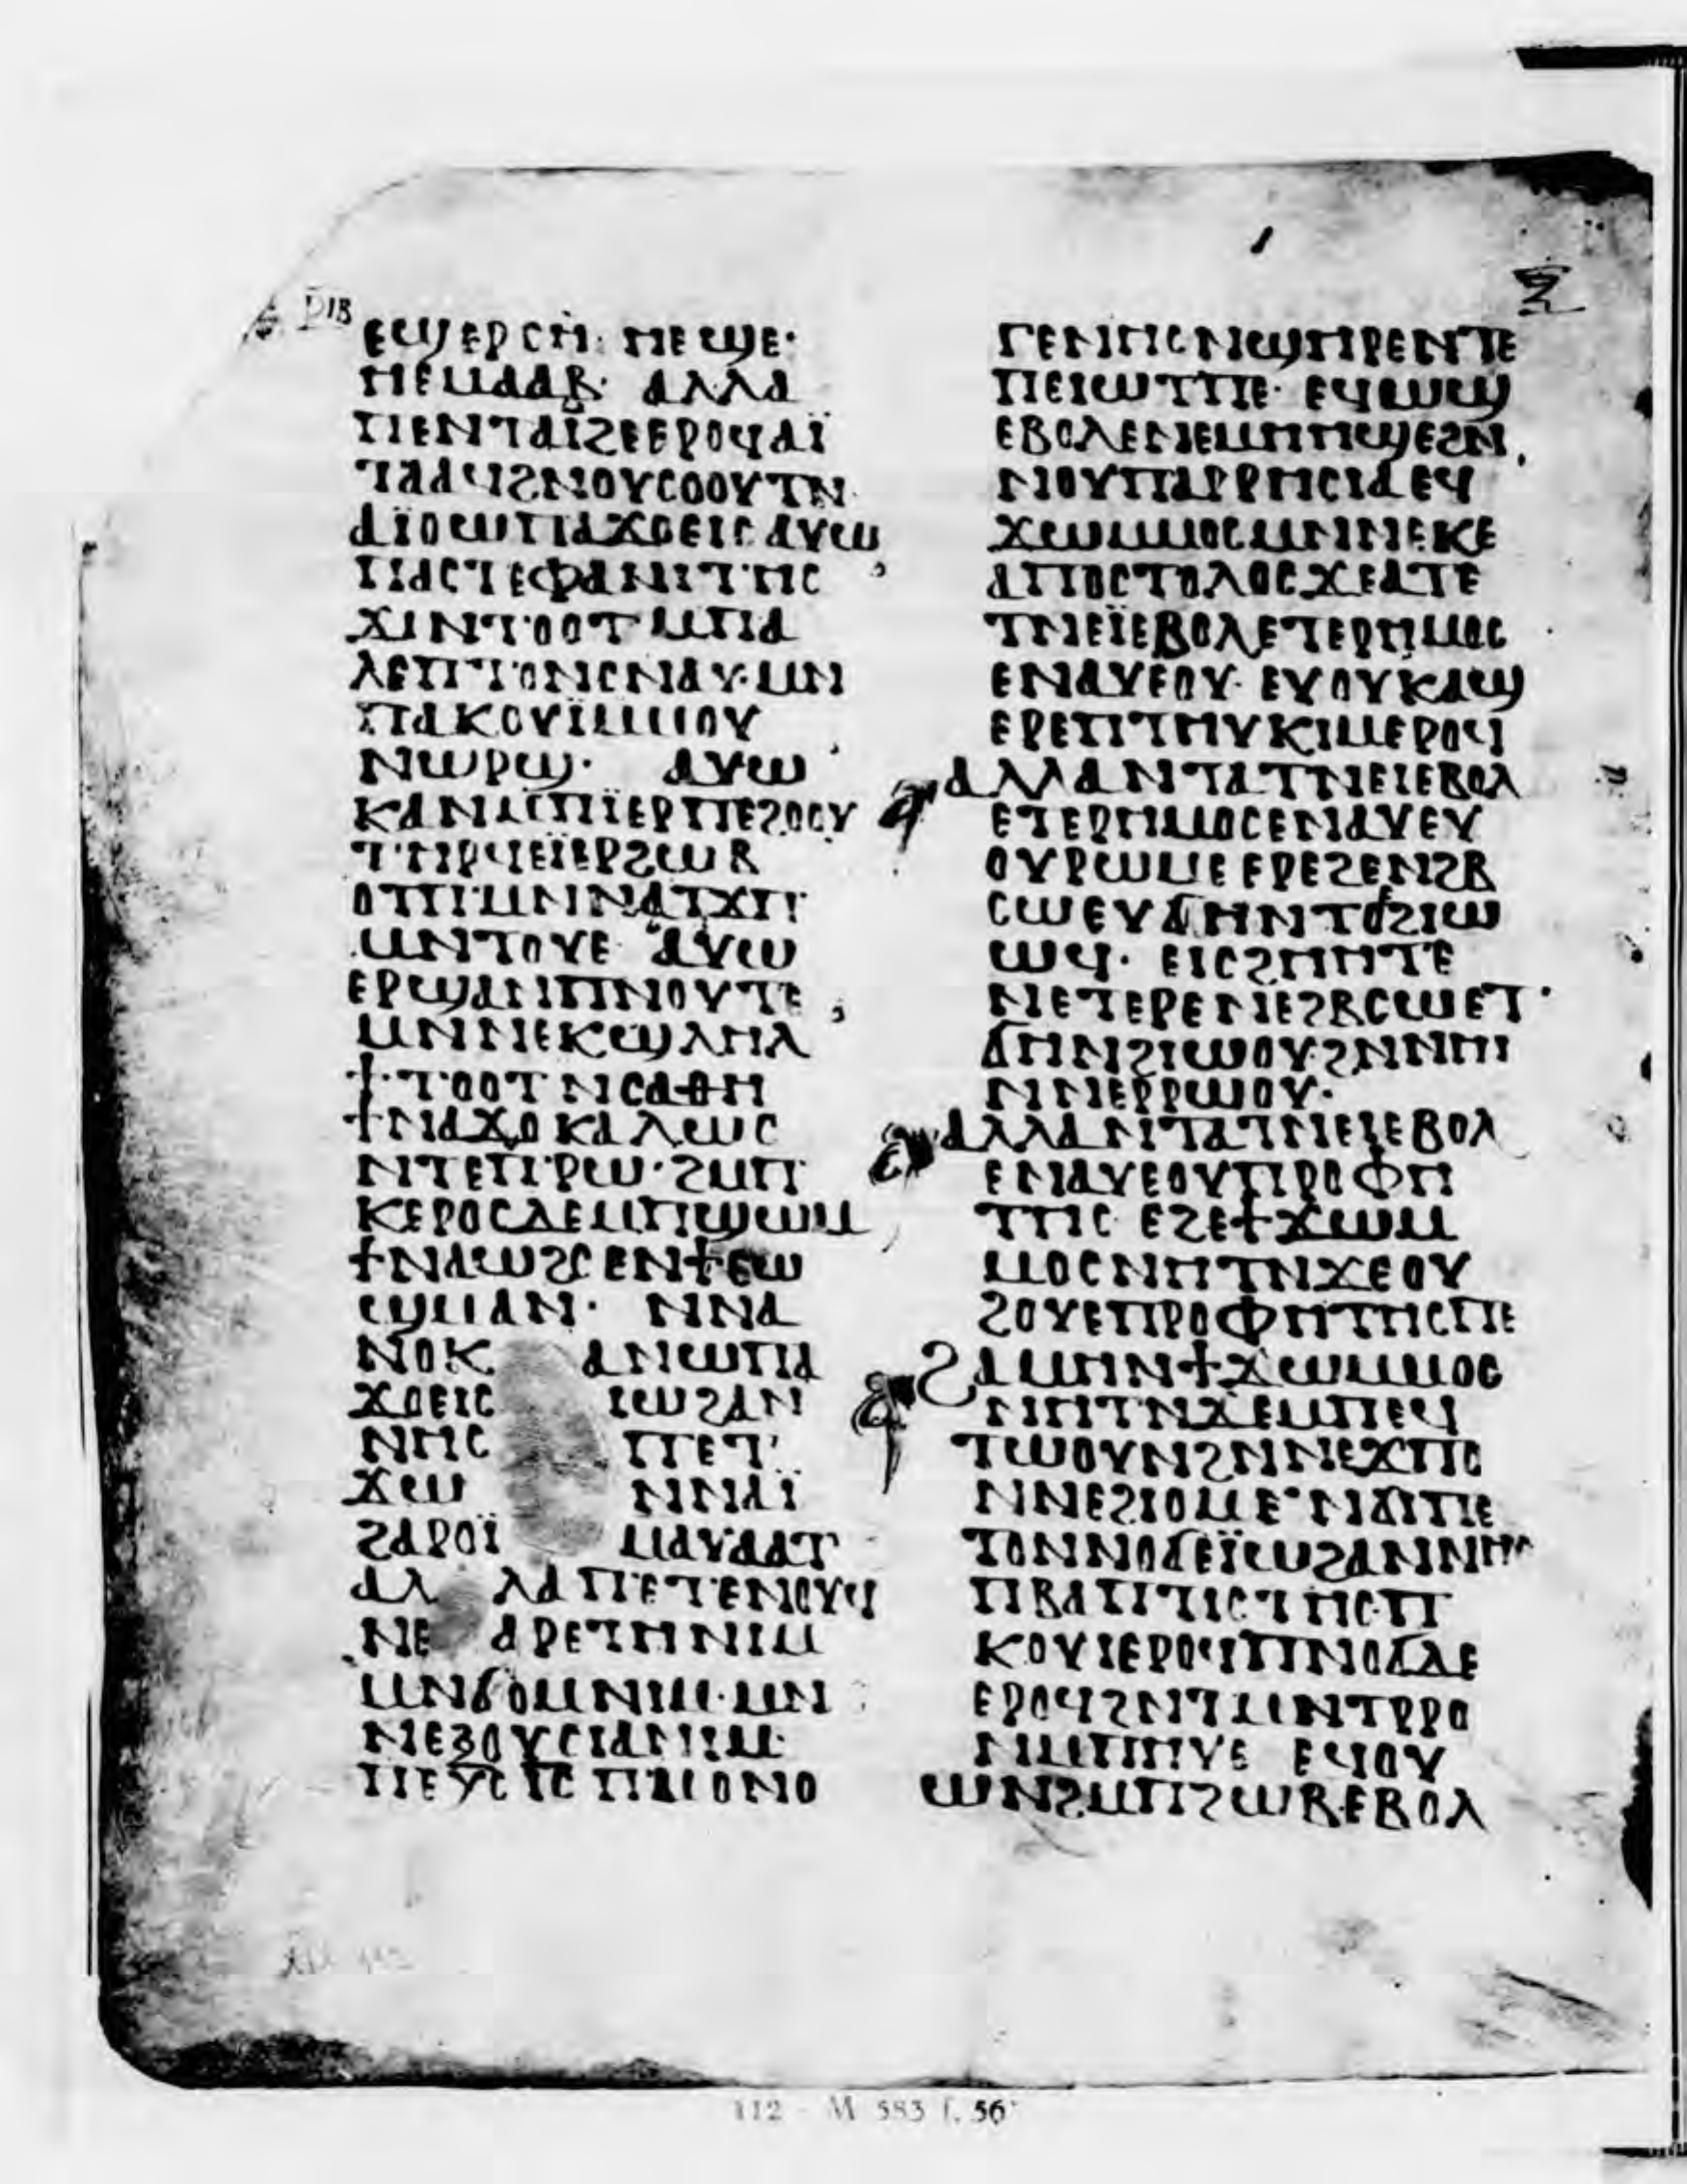 ⲣⲓⲃ
ⲉϥⲉⲣ ⲥⲏ· ⲏⲉ ϣⲉ·
ⲏⲉⲙⲁⲁⲃ· ⲁⲗⲗⲁ
ⲡⲉⲛⲧⲁⲓ̈ϩⲉⲉⲣⲟϥⲁⲓ̈
ⲧⲁⲁϥϩⲛⲟⲩⲥⲟⲟⲩⲧⲛ
ⲁⲓ̈ⲟⲱⲡⲁϫⲟⲉⲓⲥⲁⲩⲱ
ⲡⲁⲥⲧⲉⲫⲁⲛⲓⲧⲏⲥ
ϫⲓⲛⲧⲟⲟⲧⲙⲡⲁ
ⲗⲉⲡⲧⲟⲛⲥⲛⲁⲩ·ⲙⲛ
ⲡⲁⲕⲟⲩⲓ̈ⲙⲙⲟⲩ
ⲛⲱⲣϣ· ⲁⲩⲱ
ⲕⲁⲛⲙⲡⲓ̈ⲉⲣⲡⲉϩⲟⲟⲩ
ⲧⲏⲣϥⲉⲓ̈ⲉⲣϩⲱⲃ
ⲟⲡⲧ·ⲙⲛⲛⲁⲧϫⲡ
ⲙⲛⲧⲟⲩⲉ· ⲁⲩⲱ
ⲉⲣϣⲁⲛⲡⲛⲟⲩⲧⲉ
ⲙⲛⲛⲉⲕϣⲗⲏⲗ
ϯ·ⲧⲟⲟⲧⲛⲥⲁⲑⲏ
ϯⲛⲁϫⲟⲕⲁⲗⲱⲥ
ⲛⲧⲉⲡⲣⲱ·ϩⲙⲡ
ⲕⲉⲣⲟⲥⲇⲉⲙⲡϣⲱⲙ
ϯⲛⲁⲱϩⲥⲉⲛϯⲉⲱ
ϣⲙⲁⲛ· ⲛⲛⲁ
ⲛⲟⲕ ⲁⲛⲱⲡⲁ
ϫⲟⲉⲓⲥ ⲓⲱϩⲁⲛ
ⲛⲏⲥ ⲡⲉⲧ
ϫⲱ ⲛⲛⲁⲓ̈
ϩⲁⲣⲟⲓ̈ ⲙⲁⲩⲁⲁⲧ
ⲁⲗ ⲗⲁⲡⲉⲧⲉⲛⲟⲩϥ
ⲛⲉ ⲁⲣⲉⲧⲏⲛⲓⲙ
ⲙⲛϭⲟⲙⲛⲓⲙ·ⲙⲛ
ⲛⲉⲝⲟⲩⲥⲓⲁⲛⲓⲙ·
ⲡⲉⲭⲥ ⲓⲥ ⲡⲙⲟⲛⲟ
ⲅⲉⲛⲏⲥⲛϣⲏⲣⲉⲛⲧⲉ
ⲡⲉⲓⲱⲧⲡⲉ· ⲉϥⲱϣ
ⲉⲃⲟⲗⲉⲛⲉⲙⲏⲏϣⲉϩⲛ
ⲛⲟⲩⲡⲁⲣⲣⲏⲥⲓⲁⲉϥ
ϫⲱⲙⲙⲟⲥⲙⲛⲛⲉⲕⲉ
ⲁⲡⲟⲥⲧⲟⲗⲟⲥϫⲉⲁⲧⲉ
ⲧⲛⲉⲓ̈ⲉⲃⲟⲗⲉⲧⲉⲣⲏⲙⲟⲥ
ⲉⲛⲁⲩⲉⲟⲩ· ⲉⲩⲟⲩⲕⲁϣ
ⲉⲣⲉⲡⲧⲏⲩⲕⲓⲙⲉⲣⲟϥ
ⲁⲗⲗⲁⲛⲧⲁⲧⲛⲉⲓⲉⲃⲟⲗ
ⲉⲧⲉⲣⲏⲙⲟⲥⲉⲛⲁⲩⲉⲩ
ⲟⲩⲣⲱⲙⲉⲉⲣⲉϩⲉⲛϩⲃ
ⲥⲱⲉⲩϭⲏⲛⲧⲟϩⲓⲱ
ⲱϥ· ⲉⲓⲥϩⲏⲏⲧⲉ
ⲛⲉⲧⲉⲣⲉⲛⲉϩⲃⲥⲱⲉⲧ
ϭⲏⲛϩⲓⲱⲟⲩ·ϩⲛⲛⲏⲓ
ⲛⲛⲉⲣⲣⲱⲟⲩ·
ⲁⲗⲗⲁⲛⲧⲁⲧⲛⲉⲓⲉⲃⲟⲗ
ⲉⲛⲁⲩⲉⲟⲩⲡⲣⲟⲫⲏ
ⲧⲏⲥ ⲉϩⲉϯϫⲱⲙ
ⲙⲟⲥⲛⲏⲧⲛϫⲉⲟⲩ
ϩⲟⲩⲉⲡⲣⲟⲫⲏⲧⲏⲥⲡⲉ
ϩⲁⲙⲏⲛϯϫⲱⲙⲙⲟⲥ
ⲛⲏⲧⲛϫⲉⲙⲡⲉϥ
ⲧⲱⲟⲩⲛϩⲛⲛⲉϫⲡⲟ
ⲛⲛⲉϩⲓⲟⲙⲉ·ⲛϭⲓⲡⲉ
ⲧⲟⲛⲛⲟϭⲉⲓ̈ⲱϩⲁⲛⲛⲏⲥ
ⲡⲃⲁⲡⲧⲓⲥⲧⲏⲥ·ⲡ
ⲕⲟⲩⲓⲉⲣⲟϥⲡⲛⲟϭⲇⲉ
ⲉⲣⲟϥϩⲛⲧⲙⲛⲧⲣⲣⲟ
ⲛⲙⲡⲏⲩⲉ ⲉϥⲟⲩ
ⲱⲛϩⲙⲡϩⲱⲃⲉⲃⲟⲗ
112 - M 583 f. 56